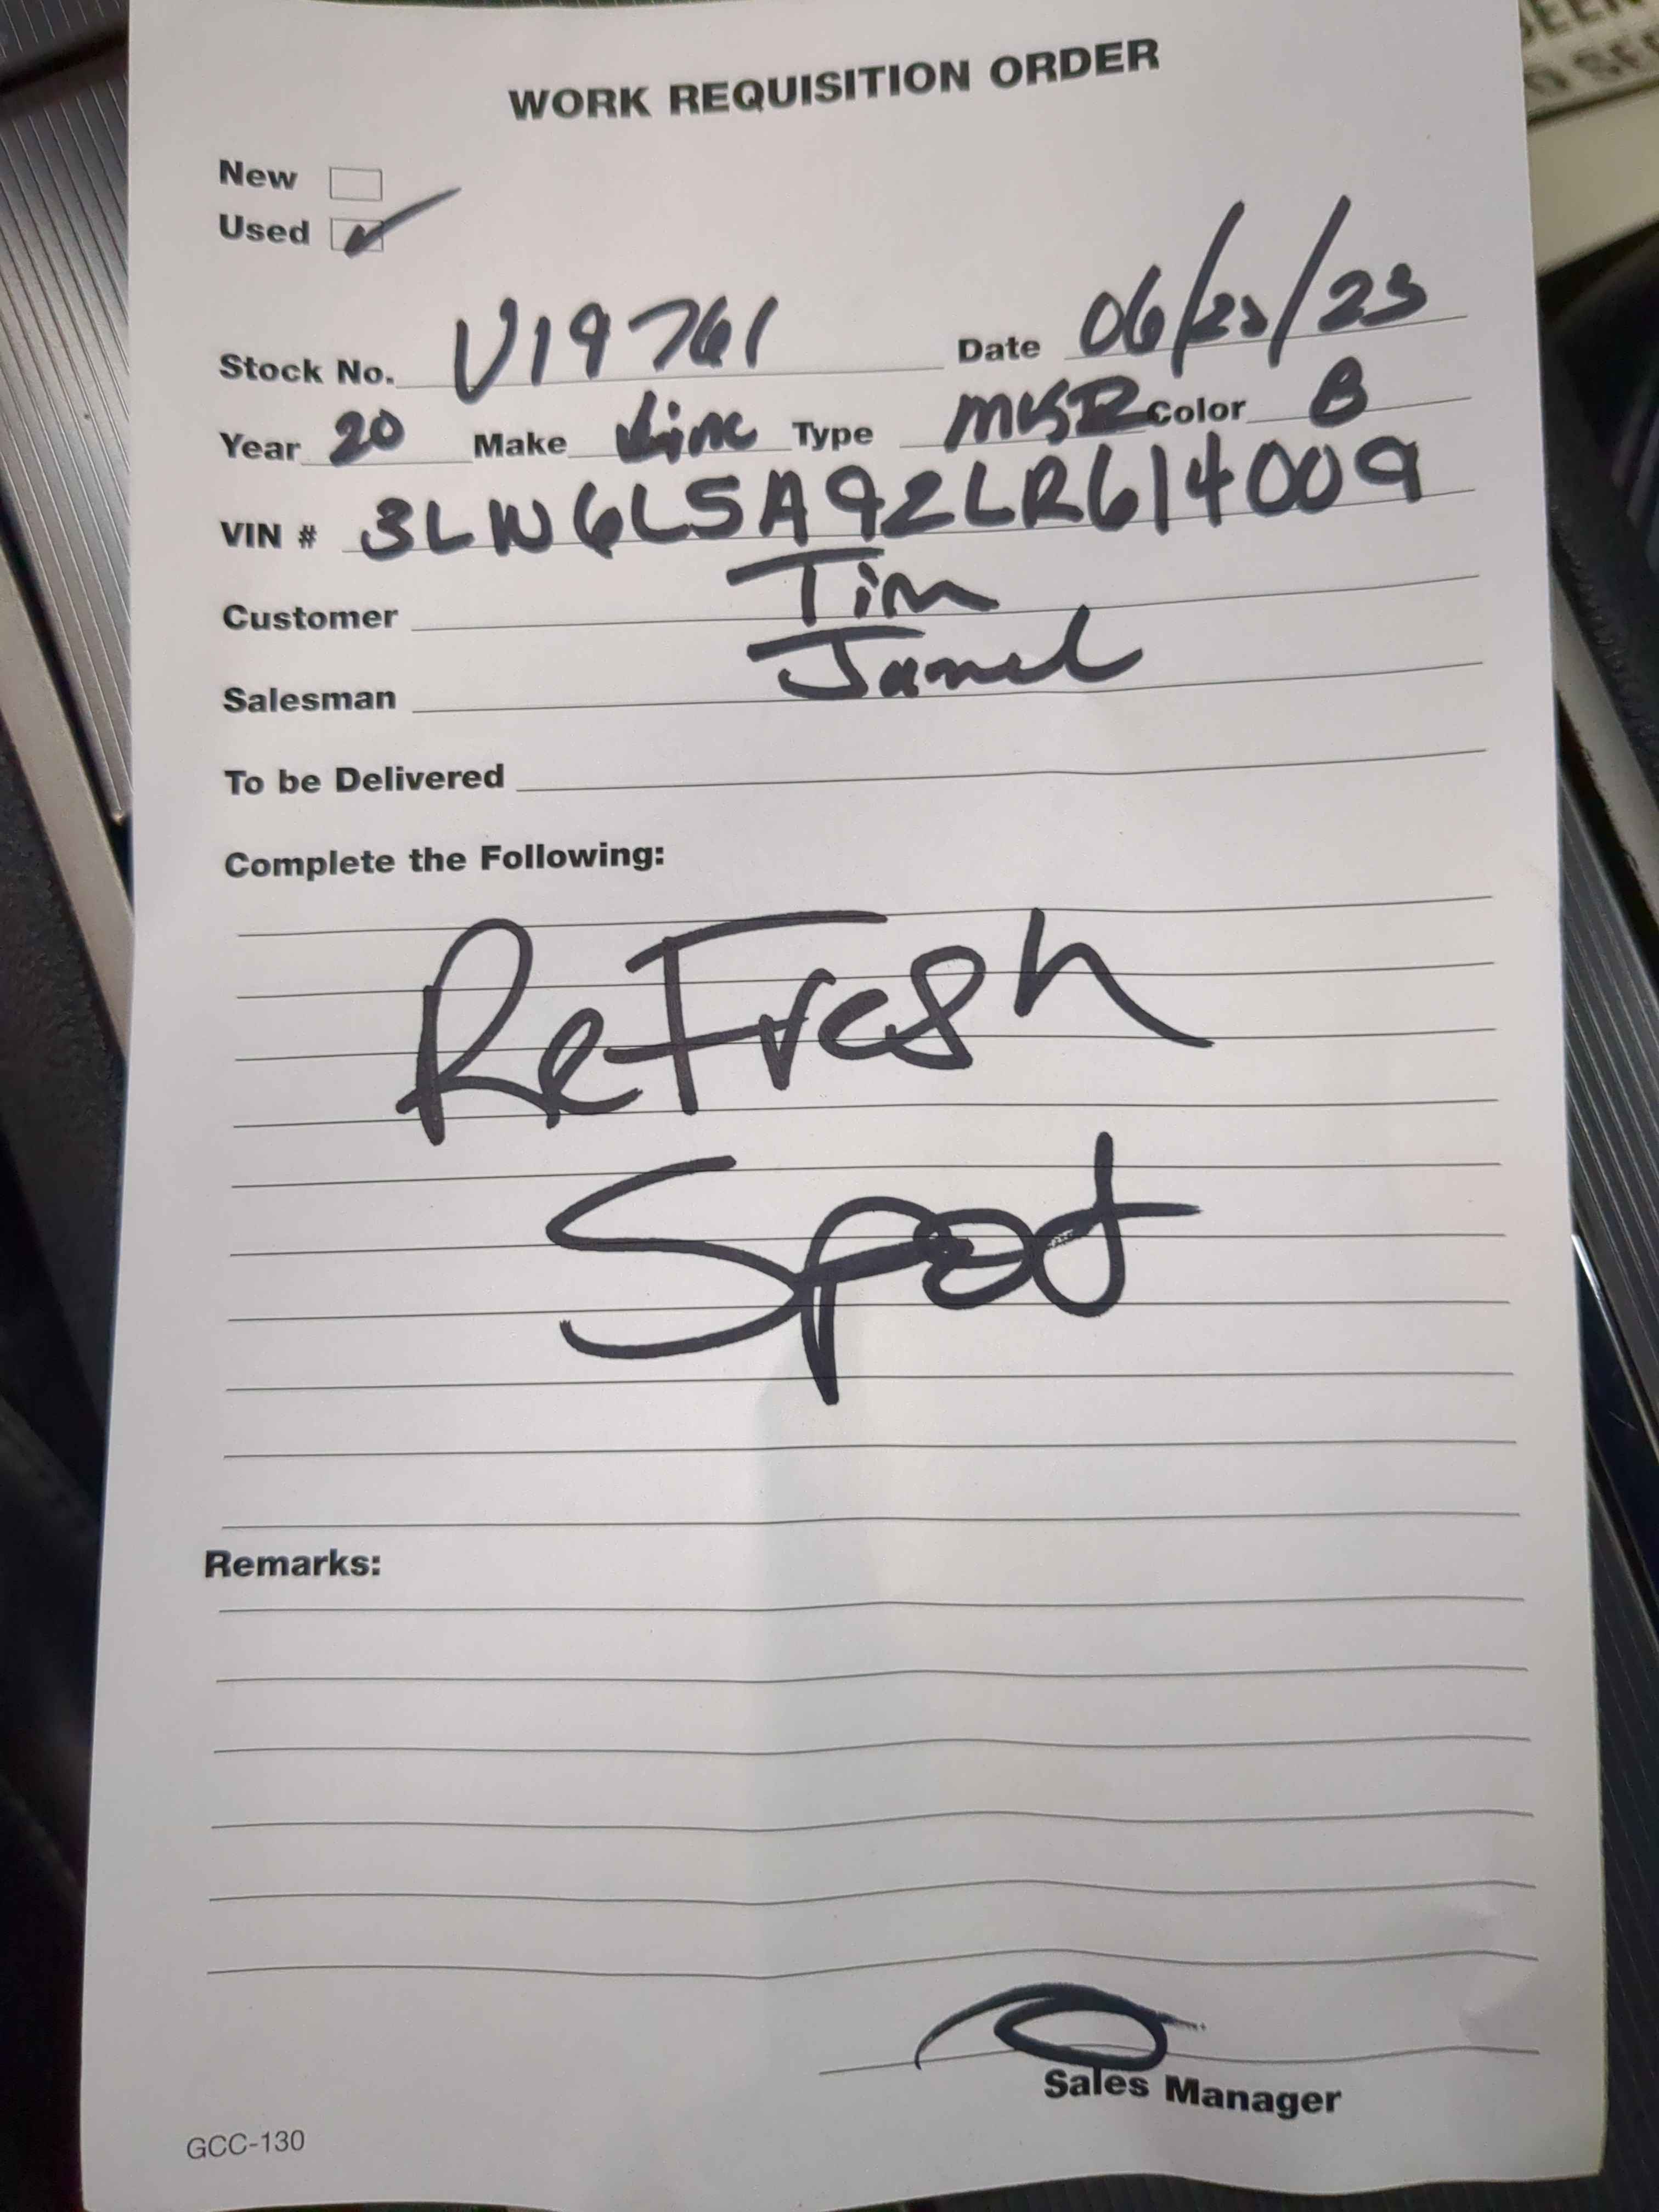 WORK REQUISITION ORDER
New
Used ✓
Stock No. U19761 Date 06/23/23
Year 20 Make Linc Type MKZ Color B
VIN # 3LN6L5A92LR614009
Customer Tim
Salesman Jamel
To be Delivered
Complete the Following:
ReFresh
Spot
Remarks:
Sales Manager
GCC-130